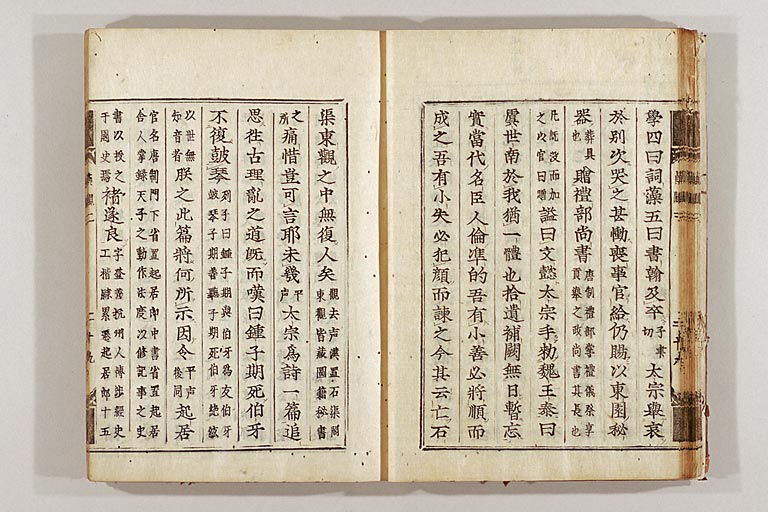 學四曰詞藻五曰書翰及卒子聿切太宗擧哀
於別次哭之甚慟喪事官給仍賜以東園秘
器葬具也贈禮部尚書唐制禮部掌禮儀祭享貢擧之政尚書其長也
凡旣沒而加之以官曰贈謚曰文懿太宗手勑魏王泰曰
虞世南於我猶一體也拾遺補闕無日暫忘
實當代名臣人倫準的吾有小善必將順而
成之吾有小失必犯顔而諫之今其云亡石
渠東觀之中無復人矣觀去声漢置石渠閣東觀皆藏圖籍秘書
之所痛惜豈可言耶未幾平声太宗爲詩一篇追
思徃古理亂之道旣而嘆曰鍾子期死伯牙
不復鼓琴列子曰鍾子期與伯牙爲友伯牙鼓琴子期善聽子期死伯牙絶絃
以世無知音者朕之此篇將何所示因令平声後同起居
官名唐制門下省置起居郞中書省置起居舍人掌錄天子之動作法度以修記事之史
書以授之于國史焉褚遂良字登善杭州人博涉經史工楷隷累遷起居郞十五